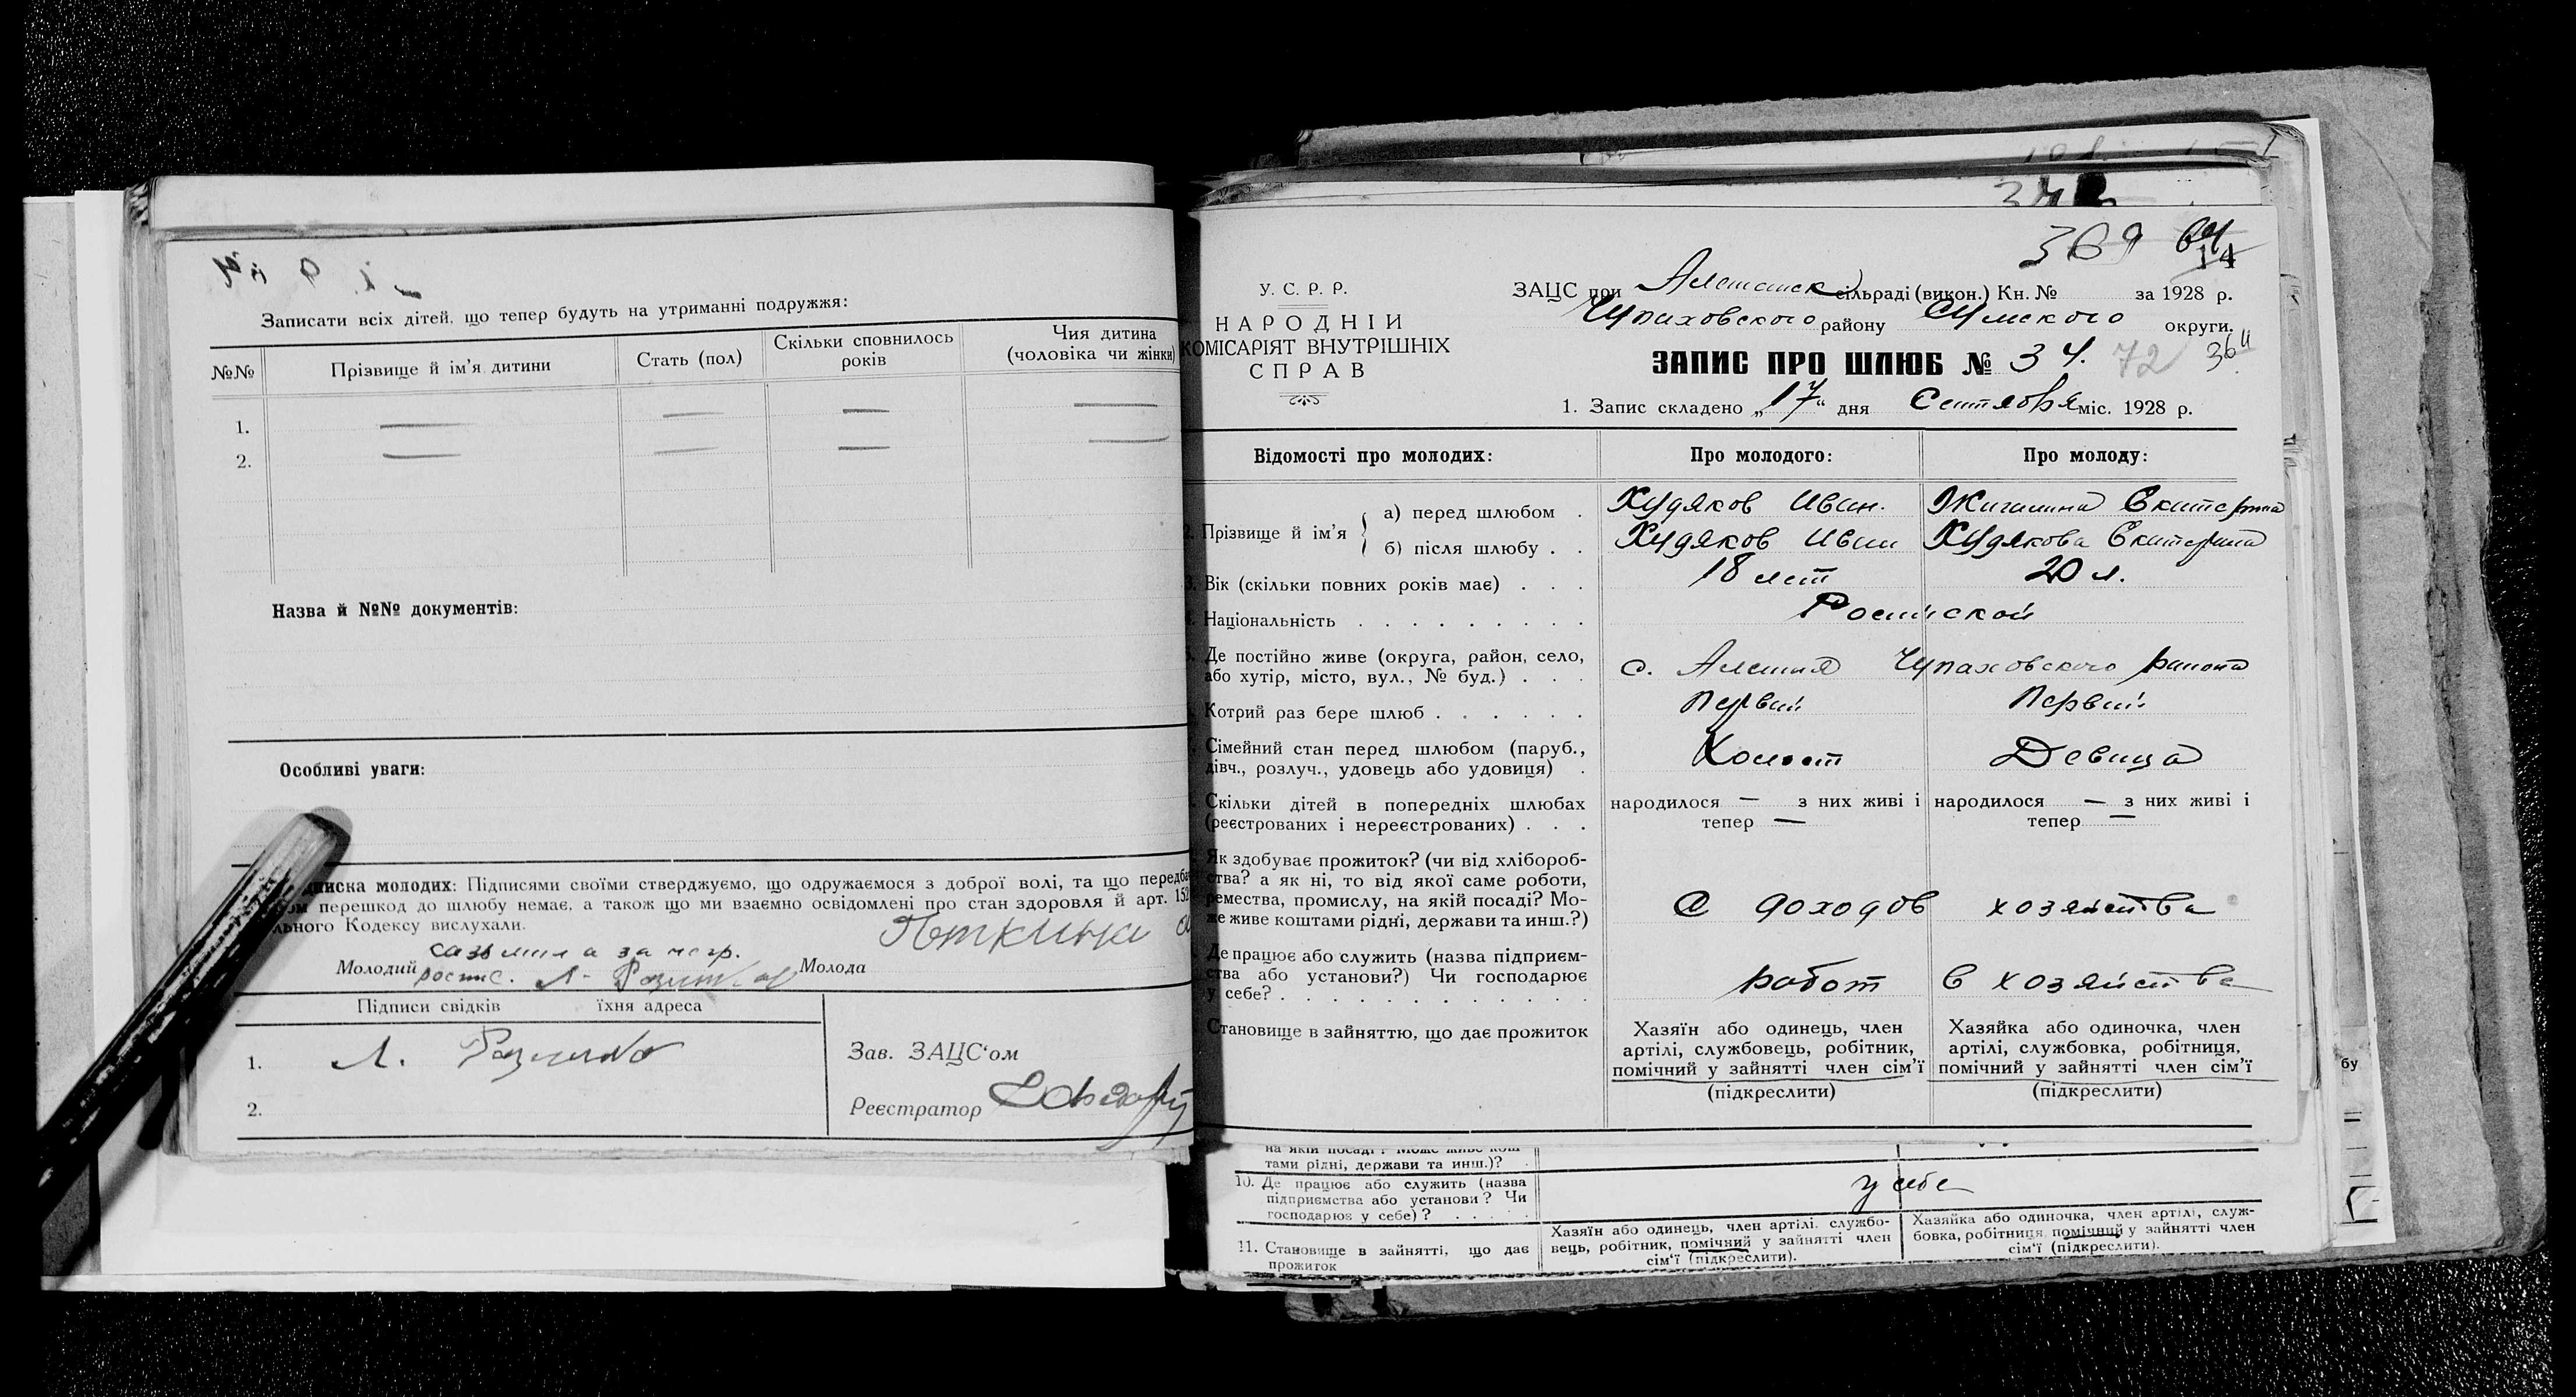 Записати всіх дітей, що тепер будуть на утриманні подружжя:
№№ Прізвище й ім'я дитини Стать (пол) Скільки сповнилось років Чия дитина (чоловіка чи жінки)
1. — — — —
2. — — — —
Назва й №№ документів:
Особливі уваги:
писка молодих: Підписями своїми стверджуємо, що одружаємося з доброї волі, та що передба
ом перешкод до шлюбу немає, а також що ми взаємно освідомлені про стан здоровля й арт. 152
льного Кодексу вислухали.
за негр.
Молодий роспис. Л. Молода
Підписи свідків їхня адреса
1. Л.
2.
Зав. ЗАЦС'ом
Реєстратор
369 64
14
У. С. Р. Р.
НАРОДНІЙ
КОМІСАРІЯТ ВНУТРІШНІХ
СПРАВ
ЗАЦС при сільраді (викон.) Кн. № за 1928 р.
Чупаховского району Сумского округи.
ЗАПИС ПРО ШЛЮБ № 34. 72
1. Запис складено „17" дня Сентября міс. 1928 р.
Відомості про молодих: Про молодого: Про молоду:
2. Прізвище й ім'я
а) перед шлюбом . Худяков Иван. Жигалина Екатерина
б) після шлюбу . . Худяков Иван Худякова Екатерина
3. Вік (скільки повних років має) . . . 18 лет 20 л.
Національність . . . . . . . . .
Де постійно живе (округа, район, село,
або хутір, місто, вул., № буд.) . . . с. Алешня Чупаховского района
Котрий раз бере шлюб . . . . . . Первый Первый
Сімейний стан перед шлюбом (паруб.,
дівч., розлуч., удовець або удовиця) . Холост Девица
Скільки дітей в попередніх шлюбах
(реєстрованих і нереєстрованих) . . .
народилося — з них живі і
тепер —
народилося — з них живі і
тепер —
Як здобуває прожиток? (чи від хлібороб-
ства? а як ні, то від якої саме роботи,
ремества, промислу, на якій посаді? Мо-
же живе коштами рідні, держави та инш.?)
С доходов хозяйства
Де працює або служить (назва підприєм-
ства або установи?) Чи господарює
у себе? . . . . . . . . . . . .
работ в хозяйстве
Становище в зайняттю, що дає прожиток
Хазяїн або одинець, член
артілі, службовець, робітник,
помічний у зайнятті член сім'ї
(підкреслити)
Хазяйка або одиночка, член
артілі, службовка, робітниця,
помічний у зайнятті член сім'ї
(підкреслити)
тами рідні, держави та инш.)?
10. Де працює або служить (назва
підприємства або установи? Чи
господарює у себе)? . . . . .
у себе
11. Становище в зайнятті, що дає
прожиток
Хазяїн або одинець, член артілі, службо-
вець, робітник, помічний у зайнятті член
сім'ї (підкреслити).
Хазяйка або одиночка, член артілі, служ-
бовка, робітниця, помічний у зайнятті член
сім'ї (підкреслити).
бу